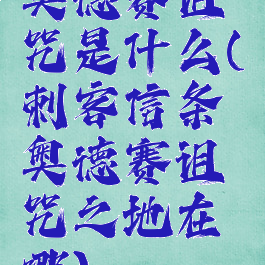 奥德赛诅
咒是什么(
刺客信条
奥德赛诅
咒之地在
哪)